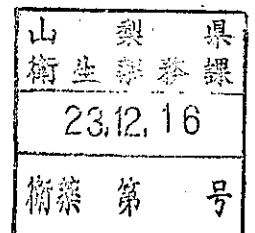 山梨県
衛生薬務課
23.12.16
衛薬第 号